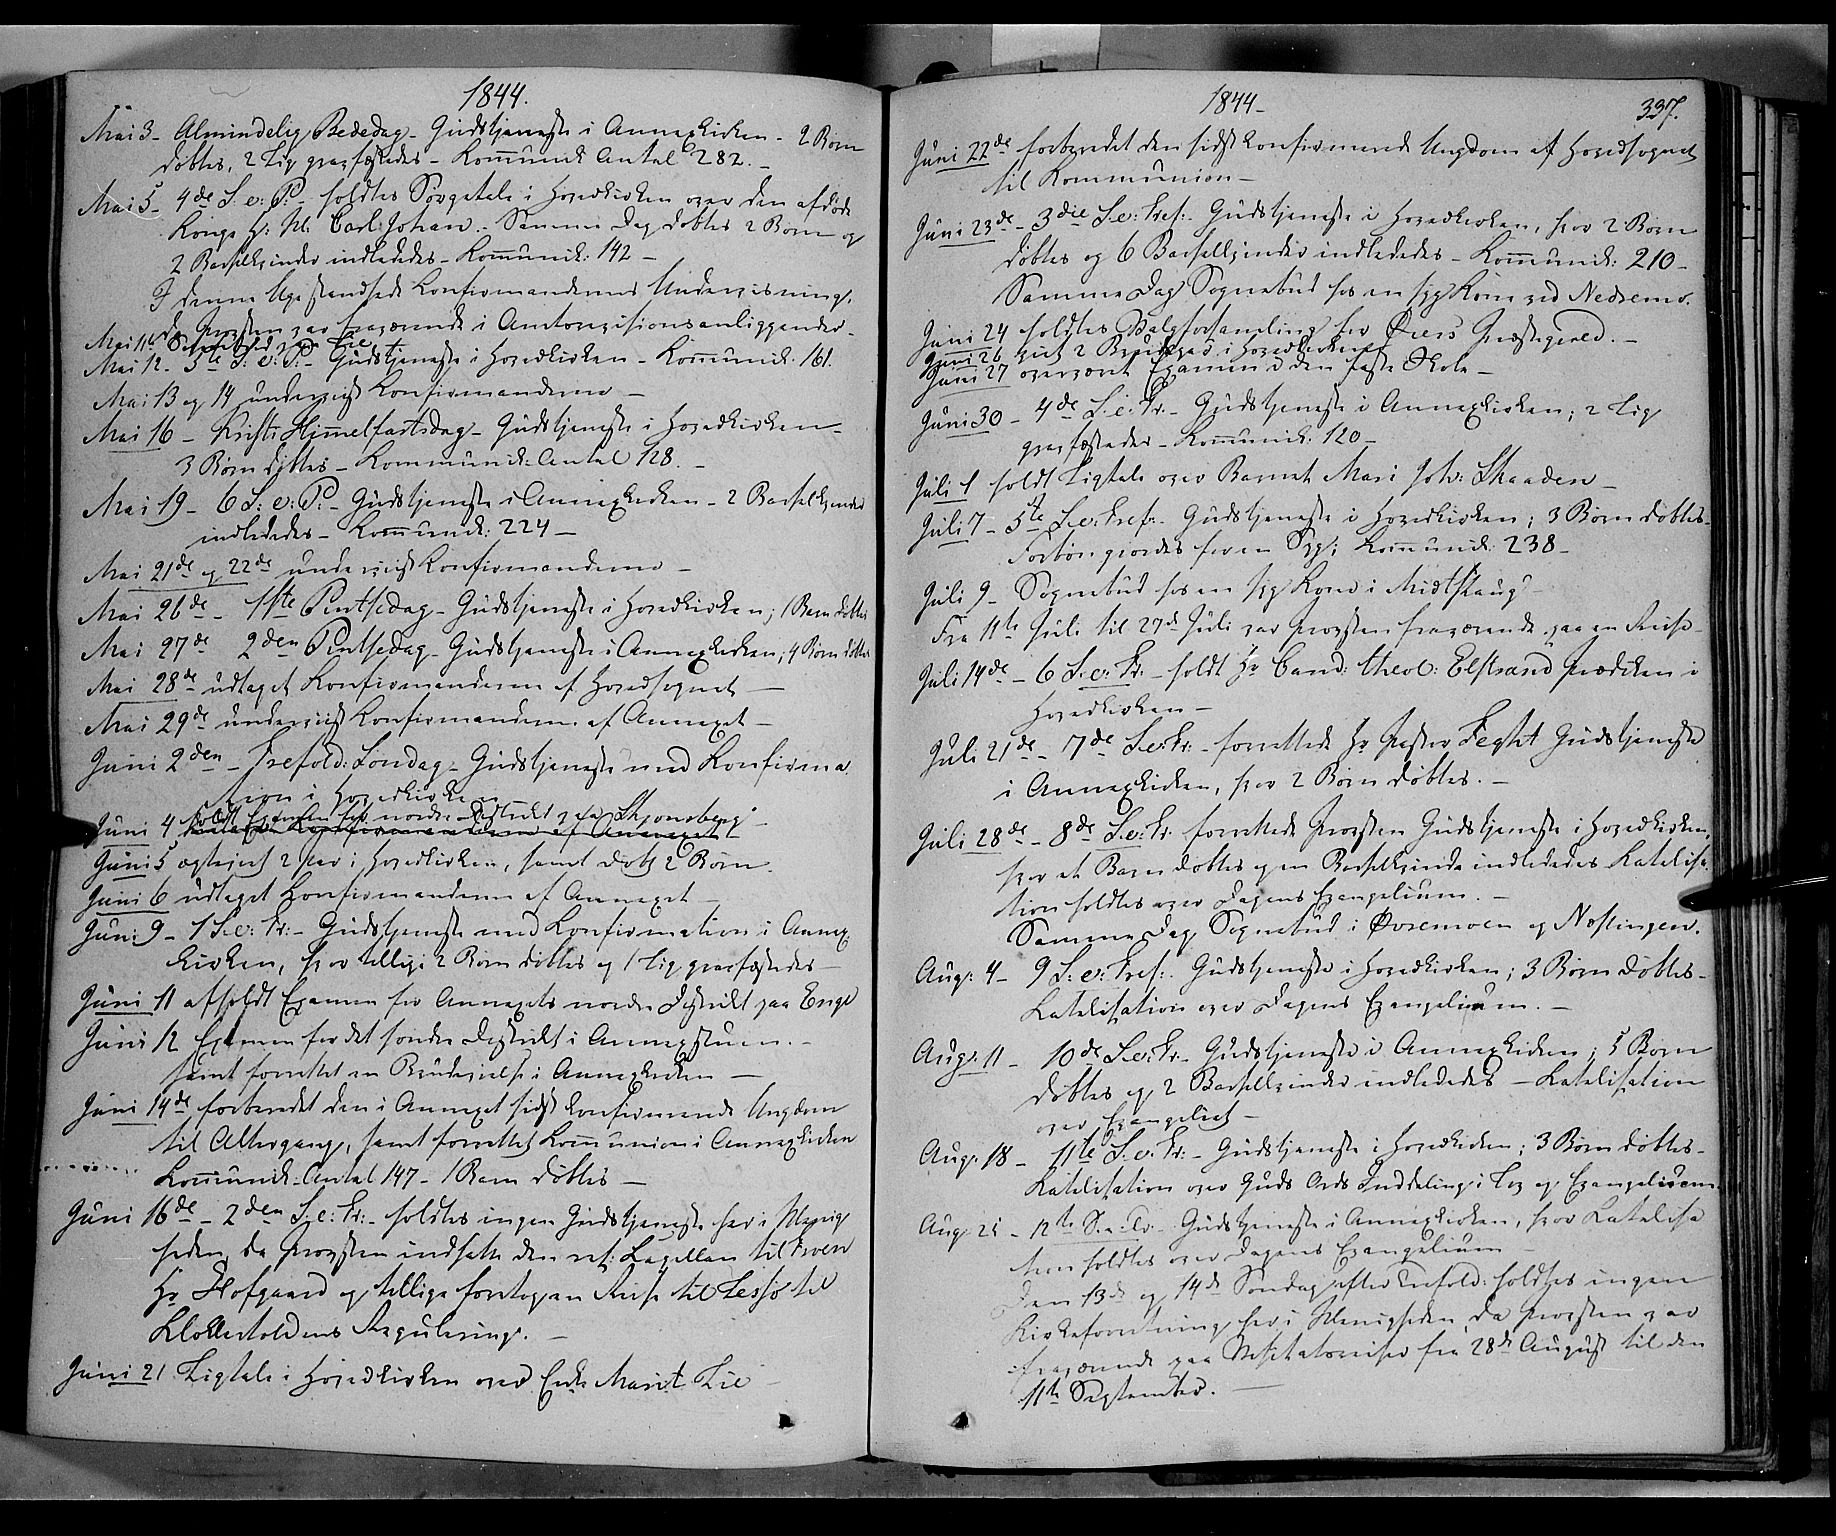 1844.
Mai 3 - Almindelig Bededag - Gudstjeneste i Annexkirken - 2 Børn
døbtes, 2 Lig gravfæstedes - Kom̄unik Antal 282. -
Mai 5 - 4de S. e: P. - holdtes Sørgetale i Hovedkirken over den afdøde
Konge H: M. Carl Johan. - Samme Dag døbtes 2 Børn og
2 Barselkvinder indlededes - Kom̄unik: 142 -
I denne Uge standsede Confirmandernes Undervisning,
da Provsten var fraværende i Amtsrevisionsanliggender. -
Mai 11te Sognebud paa Lie
Mai 12 - 5te S: e: P: - Gudstjeneste i Hovedkirken - Kom̄unik. 161.
Mai 13 og 14 underviist Konfirmanderne -
Mai 16 - Kristi Him̄elfartsdag - Gudstjeneste i Hovedkirken -
3 Børn døbtes - Kommunik: Antal 128. -
Mai 19 - 6 S: e: P: - Gudstjeneste i Annexkirken - 2 Barselkvinder
indlededes - Kom̄unik: 224 -
Mai 21de og 22de underviist Konfirmanderne -
Mai 26de - 1ste Pintsedag - Gudstjeneste i Hovedkirken; 1 Barn døbtes
Mai 27de 2den Pintsedag - Gudstjeneste i Annexkirken; 4 Børn døbtes
Mai 28de udtaget Konfirmanderne af Hovedsognet -
Mai 29de underviist Konfirmanderne af Annexet -
Juni 2den - Trefold: Søndag - Gudstjeneste med Konfirma-
tion i Hovedkirken -
Juni 4 holdt Examen for nordre Distrikt paa Skjønsberg -
Juni 5 ægteviet 2 Par i Hovedkirken, samt døbt 2 Børn.
Juni 6 udtaget Konfirmanderne af Annexet -
Juni 9 - 1 S. e: Tr: - Gudstjeneste med Konfirmation i Annex
kirken, hvor tillige 2 Børn døbtes og 1 Lig gravfæstedes -
Juni 11 afholdt Examen for Annexets nordre Distrikt paa Enge
Juni 12 Examen for det søndre Distrikt i Annexstuen. -
samt forrettet en Brudevielse i Annexkirken -
Juni 14de forberedet den i Annexet sidst konfirmerede Ungdom
til Altergang, samt forrettet Kom̄union i Annexkirken
Kom̄unik-Antal 147 - 1 Barn døbtes -
Juni 16de - 2den S. e: Tr: - holdtes ingen Gudstjeneste her i Menig-
heden, da Provsten indsatte den res: Kapellan til Froen
Hr Hofgaard og tillige foretog en Reise til Lessø til
Klokkerholdens Regulering. -
Juni 21 Ligtale i Hovedkirken over Enke Marit Lie -
1844 -
337.
Juni 22de forberedet den sidst konfirmerede Ungdom af Hovedsognet
til Kommunion -
Juni 23de - 3die S. e: Tref: - Gudstjeneste i Hovedkirken, hvor 2 Børn
døbtes og 6 Barselkvinder indlededes - Kom̄unik: 210 -
Samme Dag Sognebud hos en syg Kone ved Nedremo.
Juni 24 holdtes Valgforsamling for Øiers Præstegjeld. -
Juni 26 viet 2 Brudepar i Hovedkirken
Juni 27 overværet Examen i den faste Skole -
Juni 30 - 4de S. e: Tr. - Gudstjeneste i Annexkirken; 2 Lig
gravfæstedes - Kom̄unik: 120 -
Juli 1 holdt Ligtale over Barnet Mari Joh: Skaaden -
Juli 7 - 5te S. e: Tref. - Gudstjeneste i Hovedkirken; 3 Børn døbtes -
Forbøn gjordes for en Syg; Kom̄unik: 238 -
Juli 9 - Sognebud hos en syg Kone i Midtskaug -
Fra 11te Juli til 27de Juli var Provsten fraværende paa en Reise -
Juli 14de - 6 S. e: Tr. - holdt Hr Cand: theol: Elstrand Prædiken i
Hovedkirken -
Juli 21de - 7de S. e: Tr: - forrettede Hr Pastor Feght Gudstjeneste
i Annexkirken, hvor 2 Børn døbtes. -
Juli 28de - 8de S. e: Tr: forrettede Provsten Gudstjeneste i Hovedkirken,
hvor et Barn døbtes og en Barselkvinde indlededes Katekisa-
tion holdtes over Dagens Evangelium. -
Samme Dag Sognebud i Øvremoen og Næslingen.
Aug: 4 - 9 S: e: Tref: - Gudstjeneste i Hovedkirken; 3 Børn døbtes -
Katekisation over Dagens Evangelium. -
Aug: 11 - 10de S. e: Tr. - Gudstjeneste i Annexkirken; 5 Børn
døbtes og 2 Barselkvinder indlededes - Katekisation
over Evangeliet -
Aug: 18 - 11te S. e: Tr: - Gudstjeneste i Hovedkirken; 3 Børn døbtes -
Katekisation over Guds Ords Inddeling i Lov og Evangelium.
Aug: 25 - 12te S. e: Tr - Gudstjeneste i Annexkirken, hvor Katekisa
tion holdtes over Dagens Evangelium -
Den 13de og 14de Søndag efter Trefold: holdtes ingen
Kirkeforretning her i Menigheden, da Provsten var
fraværende paa Visitatsreiser fra 28de August til den
11te September. -